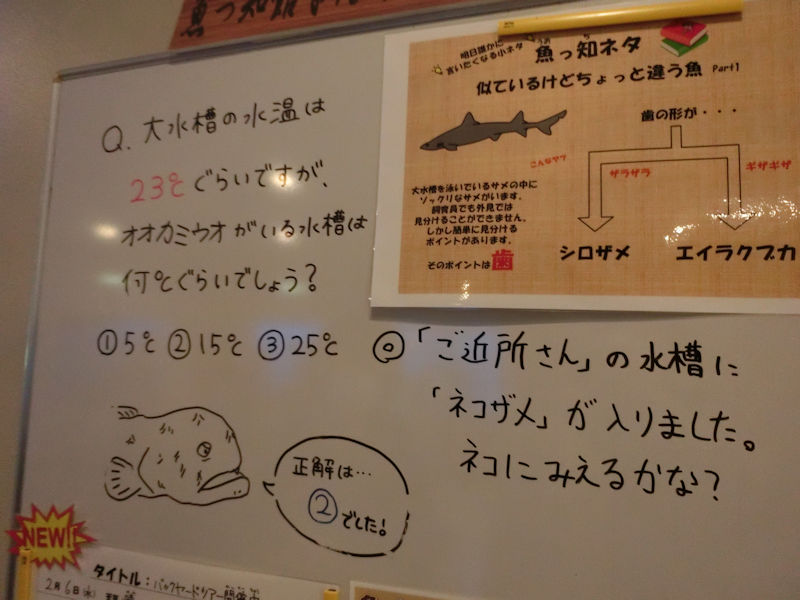 魚っ知
Q. 大水槽の水温は
23℃ぐらいですが、
オオカミウオがいる水槽は
何℃ぐらいでしょう?
①5℃ ②15℃ ③25℃
正解は…
②でした!
明日誰かに
言いたくなる小ネタ
魚っ知ネタ
似ているけどちょっと違う魚 Part1
歯の形が・・・
こんなヤツ
ザラザラ
ギザギザ
大水槽を泳いでいるサメの中に
ソックリなサメがいます。
飼育員でも外見では
見分けることができません。
しかし簡単に見分ける
ポイントがあります。
そのポイントは歯
シロザメ
エイラクブカ
◎「ご近所さん」の水槽に
「ネコザメ」が入りました。
ネコにみえるかな?
NEW!!
タイトル:バックヤードツアー開催中
2月6日(水)